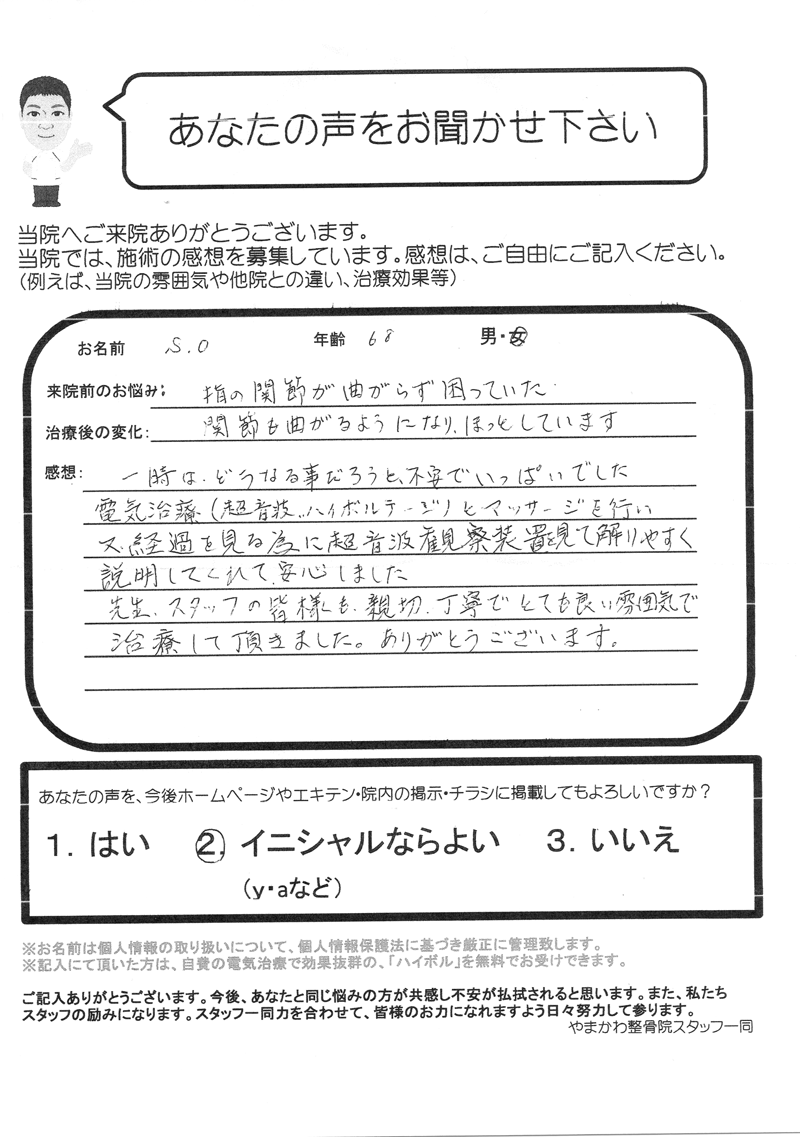 あなたの声をお聞かせ下さい
当院へご来院ありがとうございます。
当院では、施術の感想を募集しています。感想は、ご自由にご記入ください。
（例えば、当院の雰囲気や他院との違い、治療効果等）
お名前 S.O 年齢 68 男・女
来院前のお悩み： 指の関節が曲がらず困っていた.
治療後の変化： 関節も曲がるようになり、ほっとしています
感想： 一時は、どうなる事だろうと、不安でいっぱいでした
電気治療（超音波、ハイボルテージ）とマッサージを行い
又、経過を見る為に超音波観察装置を見て解りやすく
説明してくれて、安心しました
先生、スタッフの皆様も、親切、丁寧でとても良い雰囲気で
治療して頂きました。ありがとうございます。
あなたの声を、今後ホームページやエキテン・院内の掲示・チラシに掲載してもよろしいですか？
1. はい 2. イニシャルならよい 3. いいえ
（y・aなど）
※お名前は個人情報の取り扱いについて、個人情報保護法に基づき厳正に管理致します。
※記入にて頂いた方は、自費の電気治療で効果抜群の、「ハイボル」を無料でお受けできます。
ご記入ありがとうございます。今後、あなたと同じ悩みの方が共感し不安が払拭されると思います。また、私たち
スタッフの励みになります。スタッフ一同力を合わせて、皆様のお力になれますよう日々努力して参ります。
やまかわ整骨院スタッフ一同